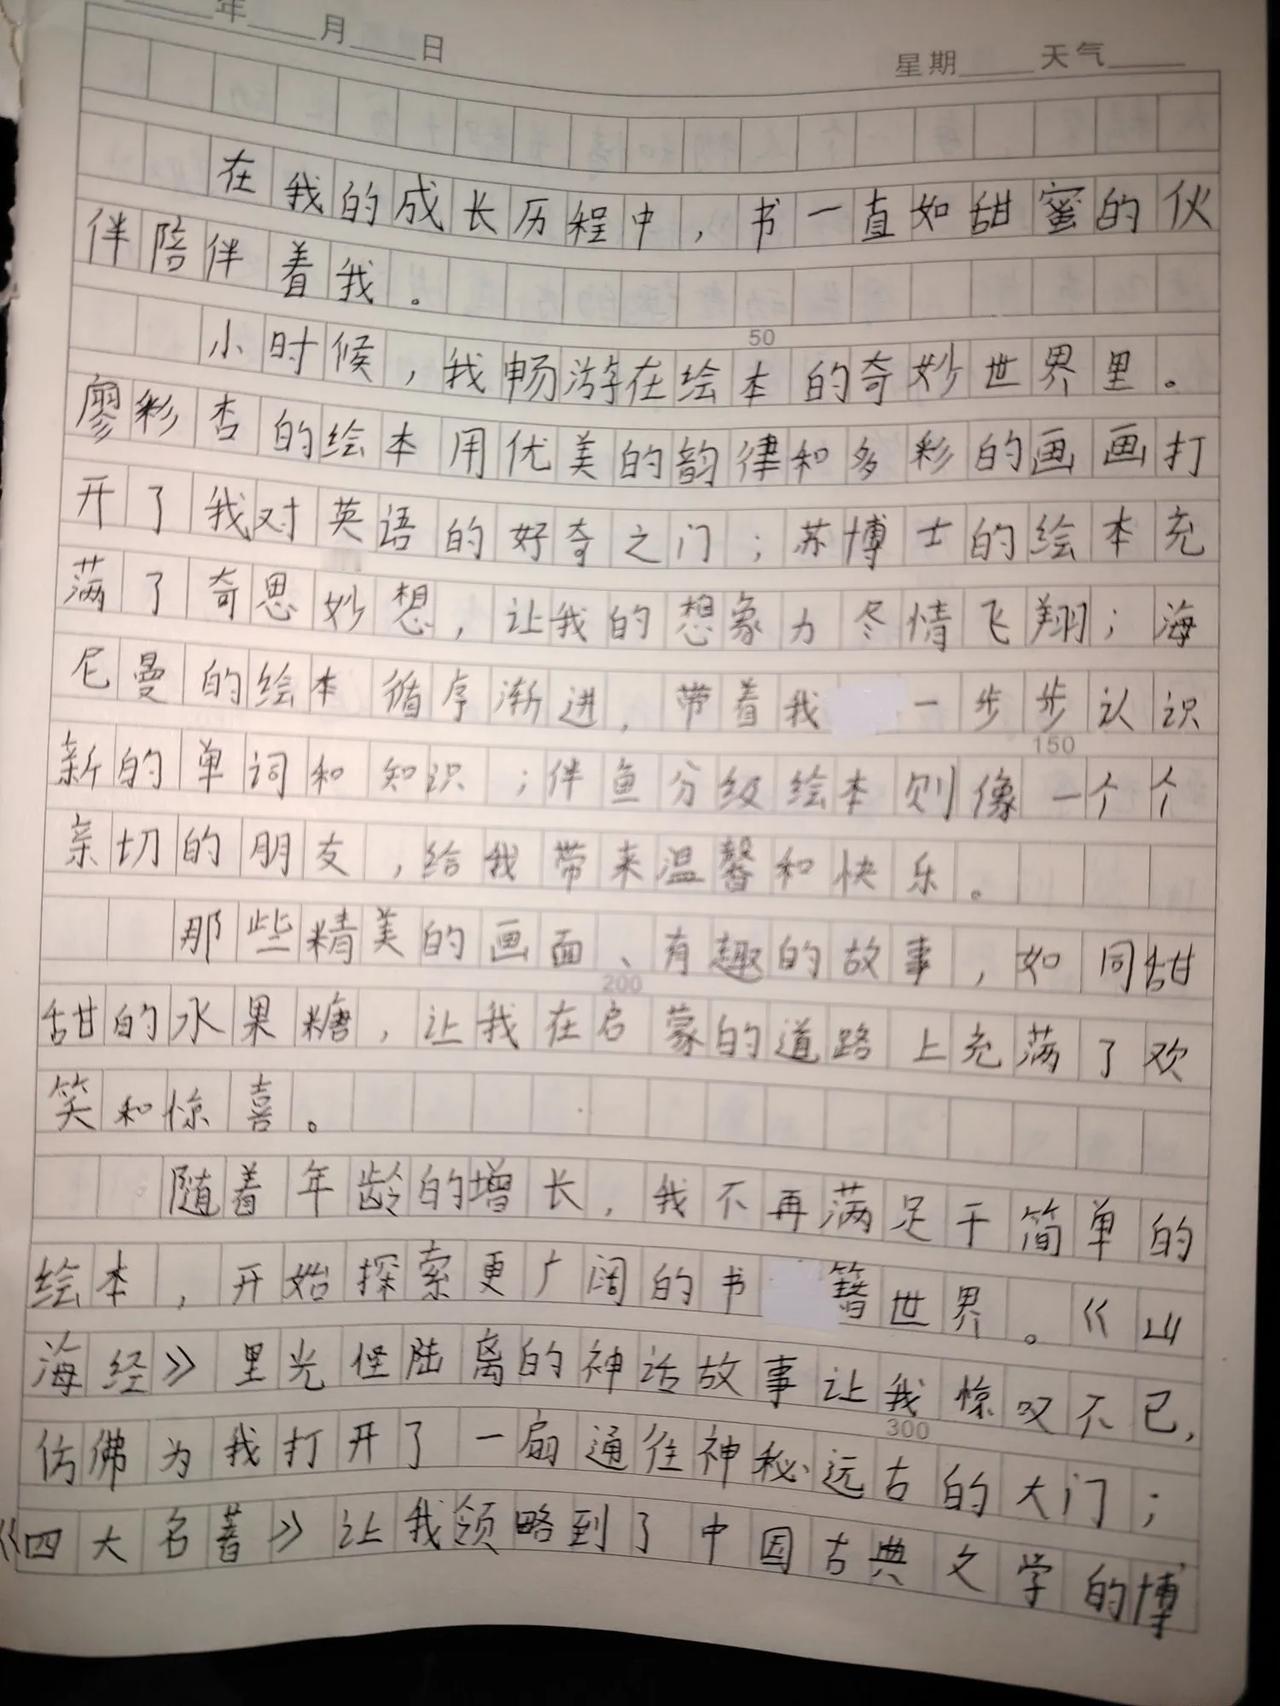 年 月 日 星期 天气
在我的成长历程中，书一直如甜蜜的伙
伴陪伴着我。
50
小时候，我畅游在绘本的奇妙世界里。
廖彩杏的绘本用优美的韵律和多彩的画画打
开了我对英语的好奇之门；苏博士的绘本充
满了奇思妙想，让我的想象力尽情飞翔；海
尼曼的绘本循序渐进，带着我一步步认识
150
新的单词和知识；伴鱼分级绘本则像一个个
亲切的朋友，给我带来温馨和快乐。
那些精美的画面、有趣的故事，如同甜
200
甜的水果糖，让我在启蒙的道路上充满了欢
笑和惊喜。
随着年龄的增长，我不再满足于简单的
绘本，开始探索更广阔的书籍世界。《山
海经》里光怪陆离的神话故事让我惊叹不已，
300
仿佛为我打开了一扇通往神秘远古的大门；
《四大名著》让我领略到了中国古典文学的博